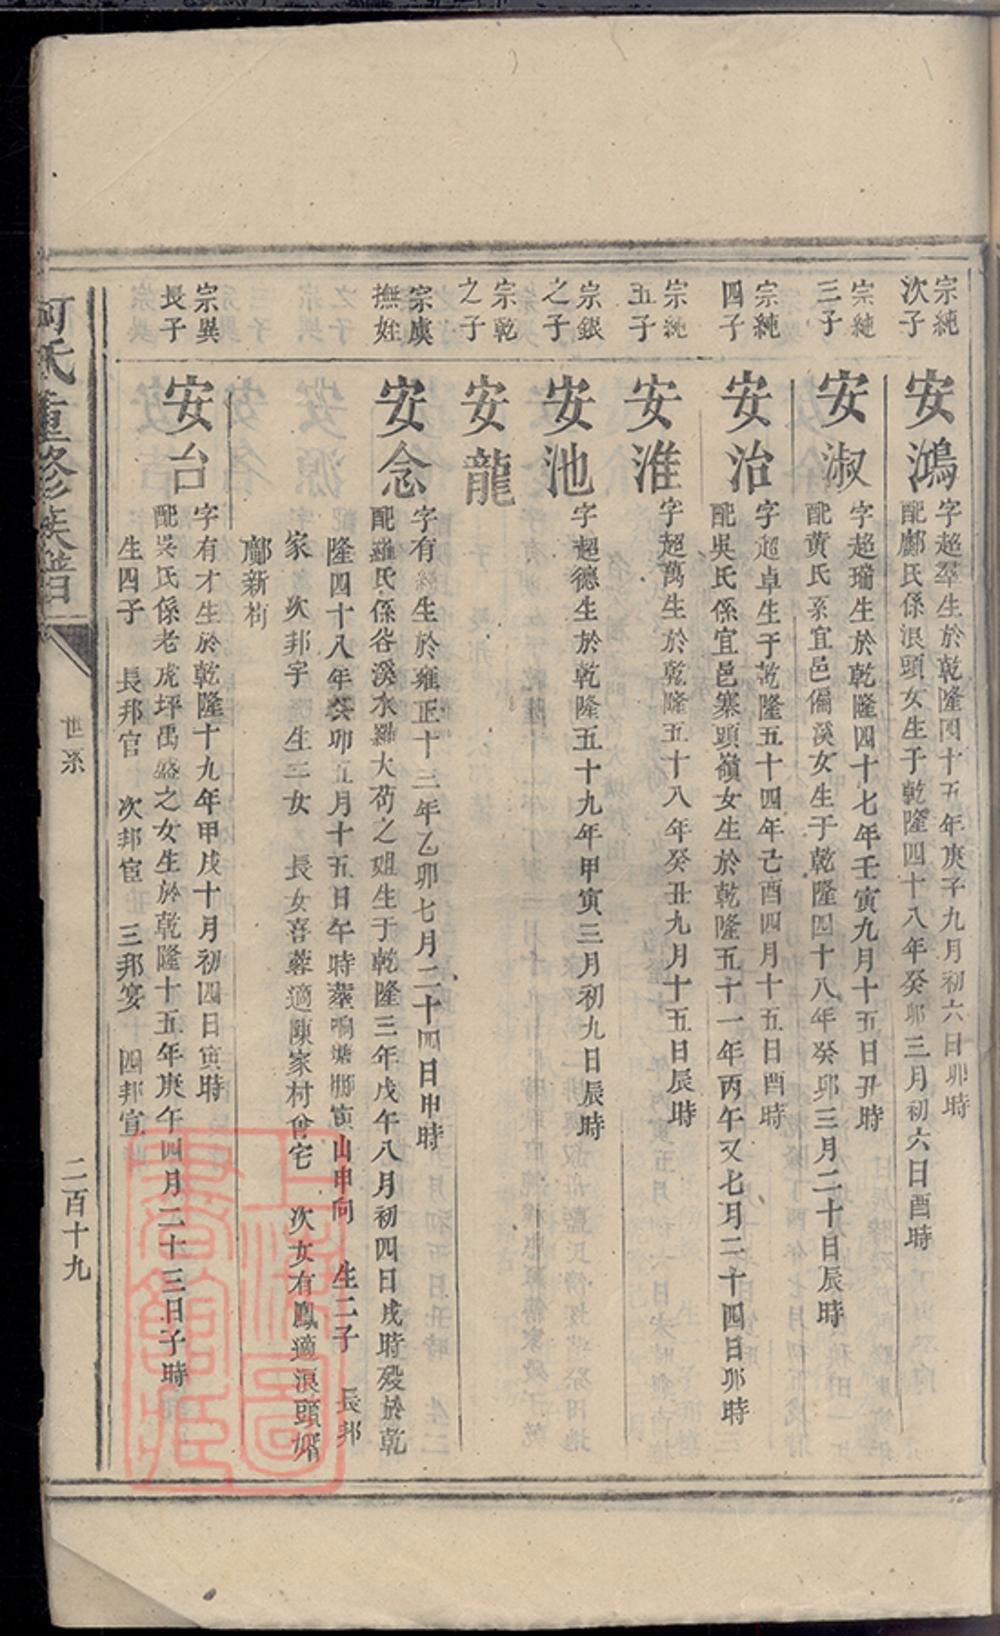 宗純
次子
安鴻
字超羣生於乾隆四十五年庚子九月初六日卯時
配鄺氏係浪頭女生于乾隆四十八年癸卯三月初六日酉時
宗純
三子
安淑
字超瑞生於乾隆四十七年壬寅九月十五日丑時
配黃氏系宜邑偏溪女生于乾隆四十八年癸卯三月二十日辰時
宗純
四子
安治
字超卓生于乾隆五十四年己酉四月十五日酉時
配吳氏係宜邑寨頭嶺女生於乾隆五十一年丙午又七月二十四日卯時
宗純
五子
安淮
字超萬生於乾隆五十八年癸丑九月十五日辰時
宗銀
之子
安池
字超德生於乾隆五十九年甲寅三月初九日辰時
宗乾
之子
安龍
宗虞
撫姪
安念
字有 生於雍正十三年乙卯七月二十四日申時
配羅氏係谷溪水羅大苟之姐生于乾隆三年戊午八月初四日戌時歿於乾
隆四十八年癸卯五月十五日午時葬鳴 寅山申向 生二子 長邦
家 次邦宇 生二女 長女喜蓉適陳家村曾宅 次女有鳳適浪頭婿
鄺新
宗異
長子
安台
字有才生於乾隆十九年甲戌十月初四日寅時
配吳氏係老虎坪禹盛之女生於乾隆十五年庚午四月二十三日子時
生四子 長邦官 次邦宦 三邦宴 四邦宣
何氏重修族譜
世系
二百十九
上海圖書館藏